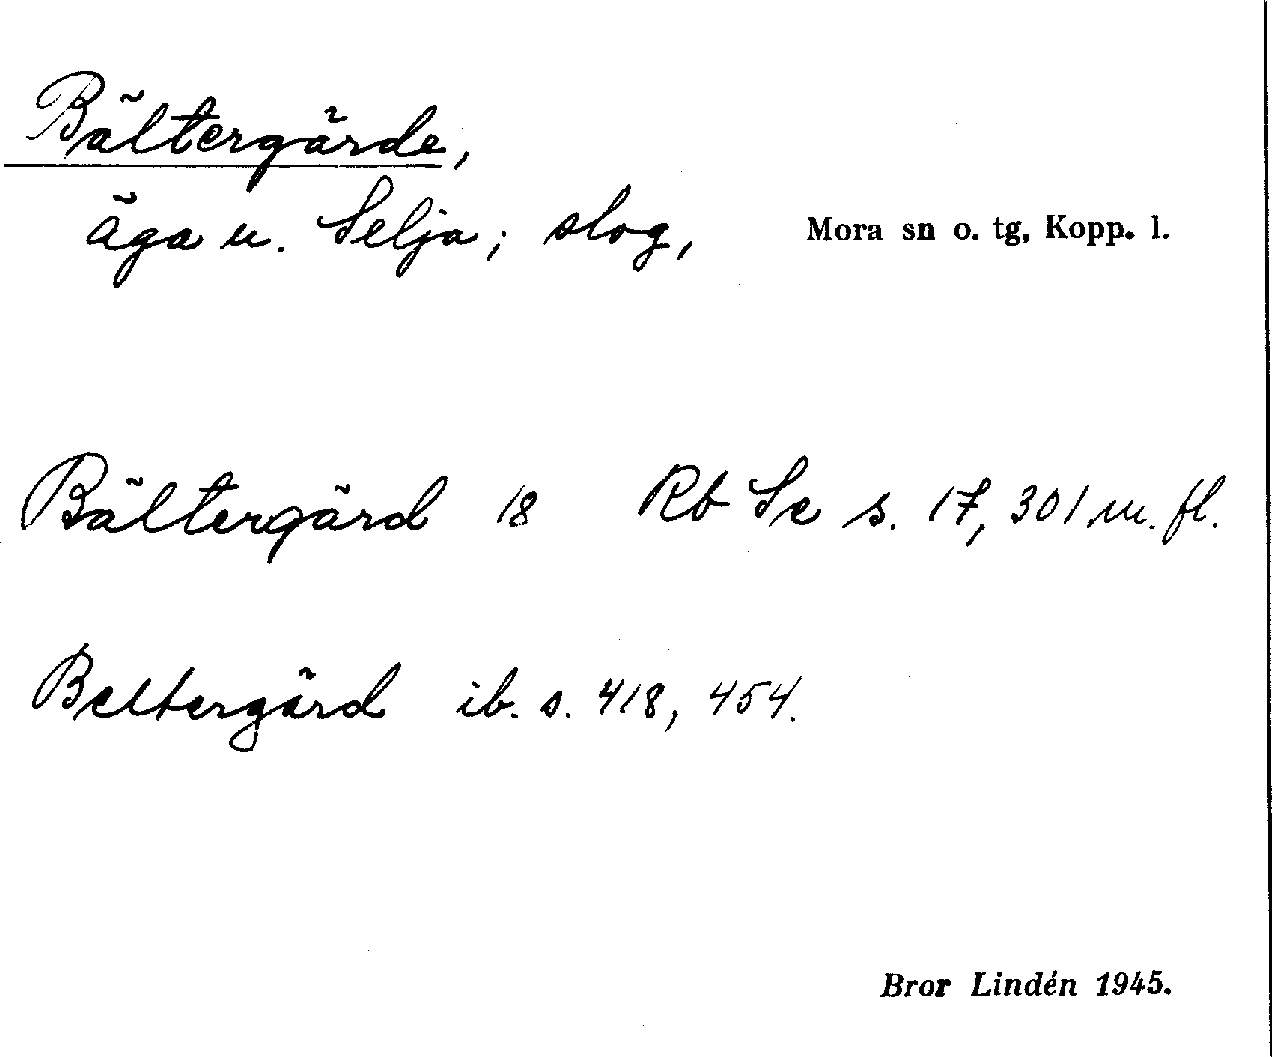 Bältergärde,
äga u. Selja; slog, Mora sn o. tg, Kopp. l.
Bältergärd 18 Rb Se s. 17, 301 m. fl.
Beltergärd ib. s. 418, 454.
Bror Lindén 1945.